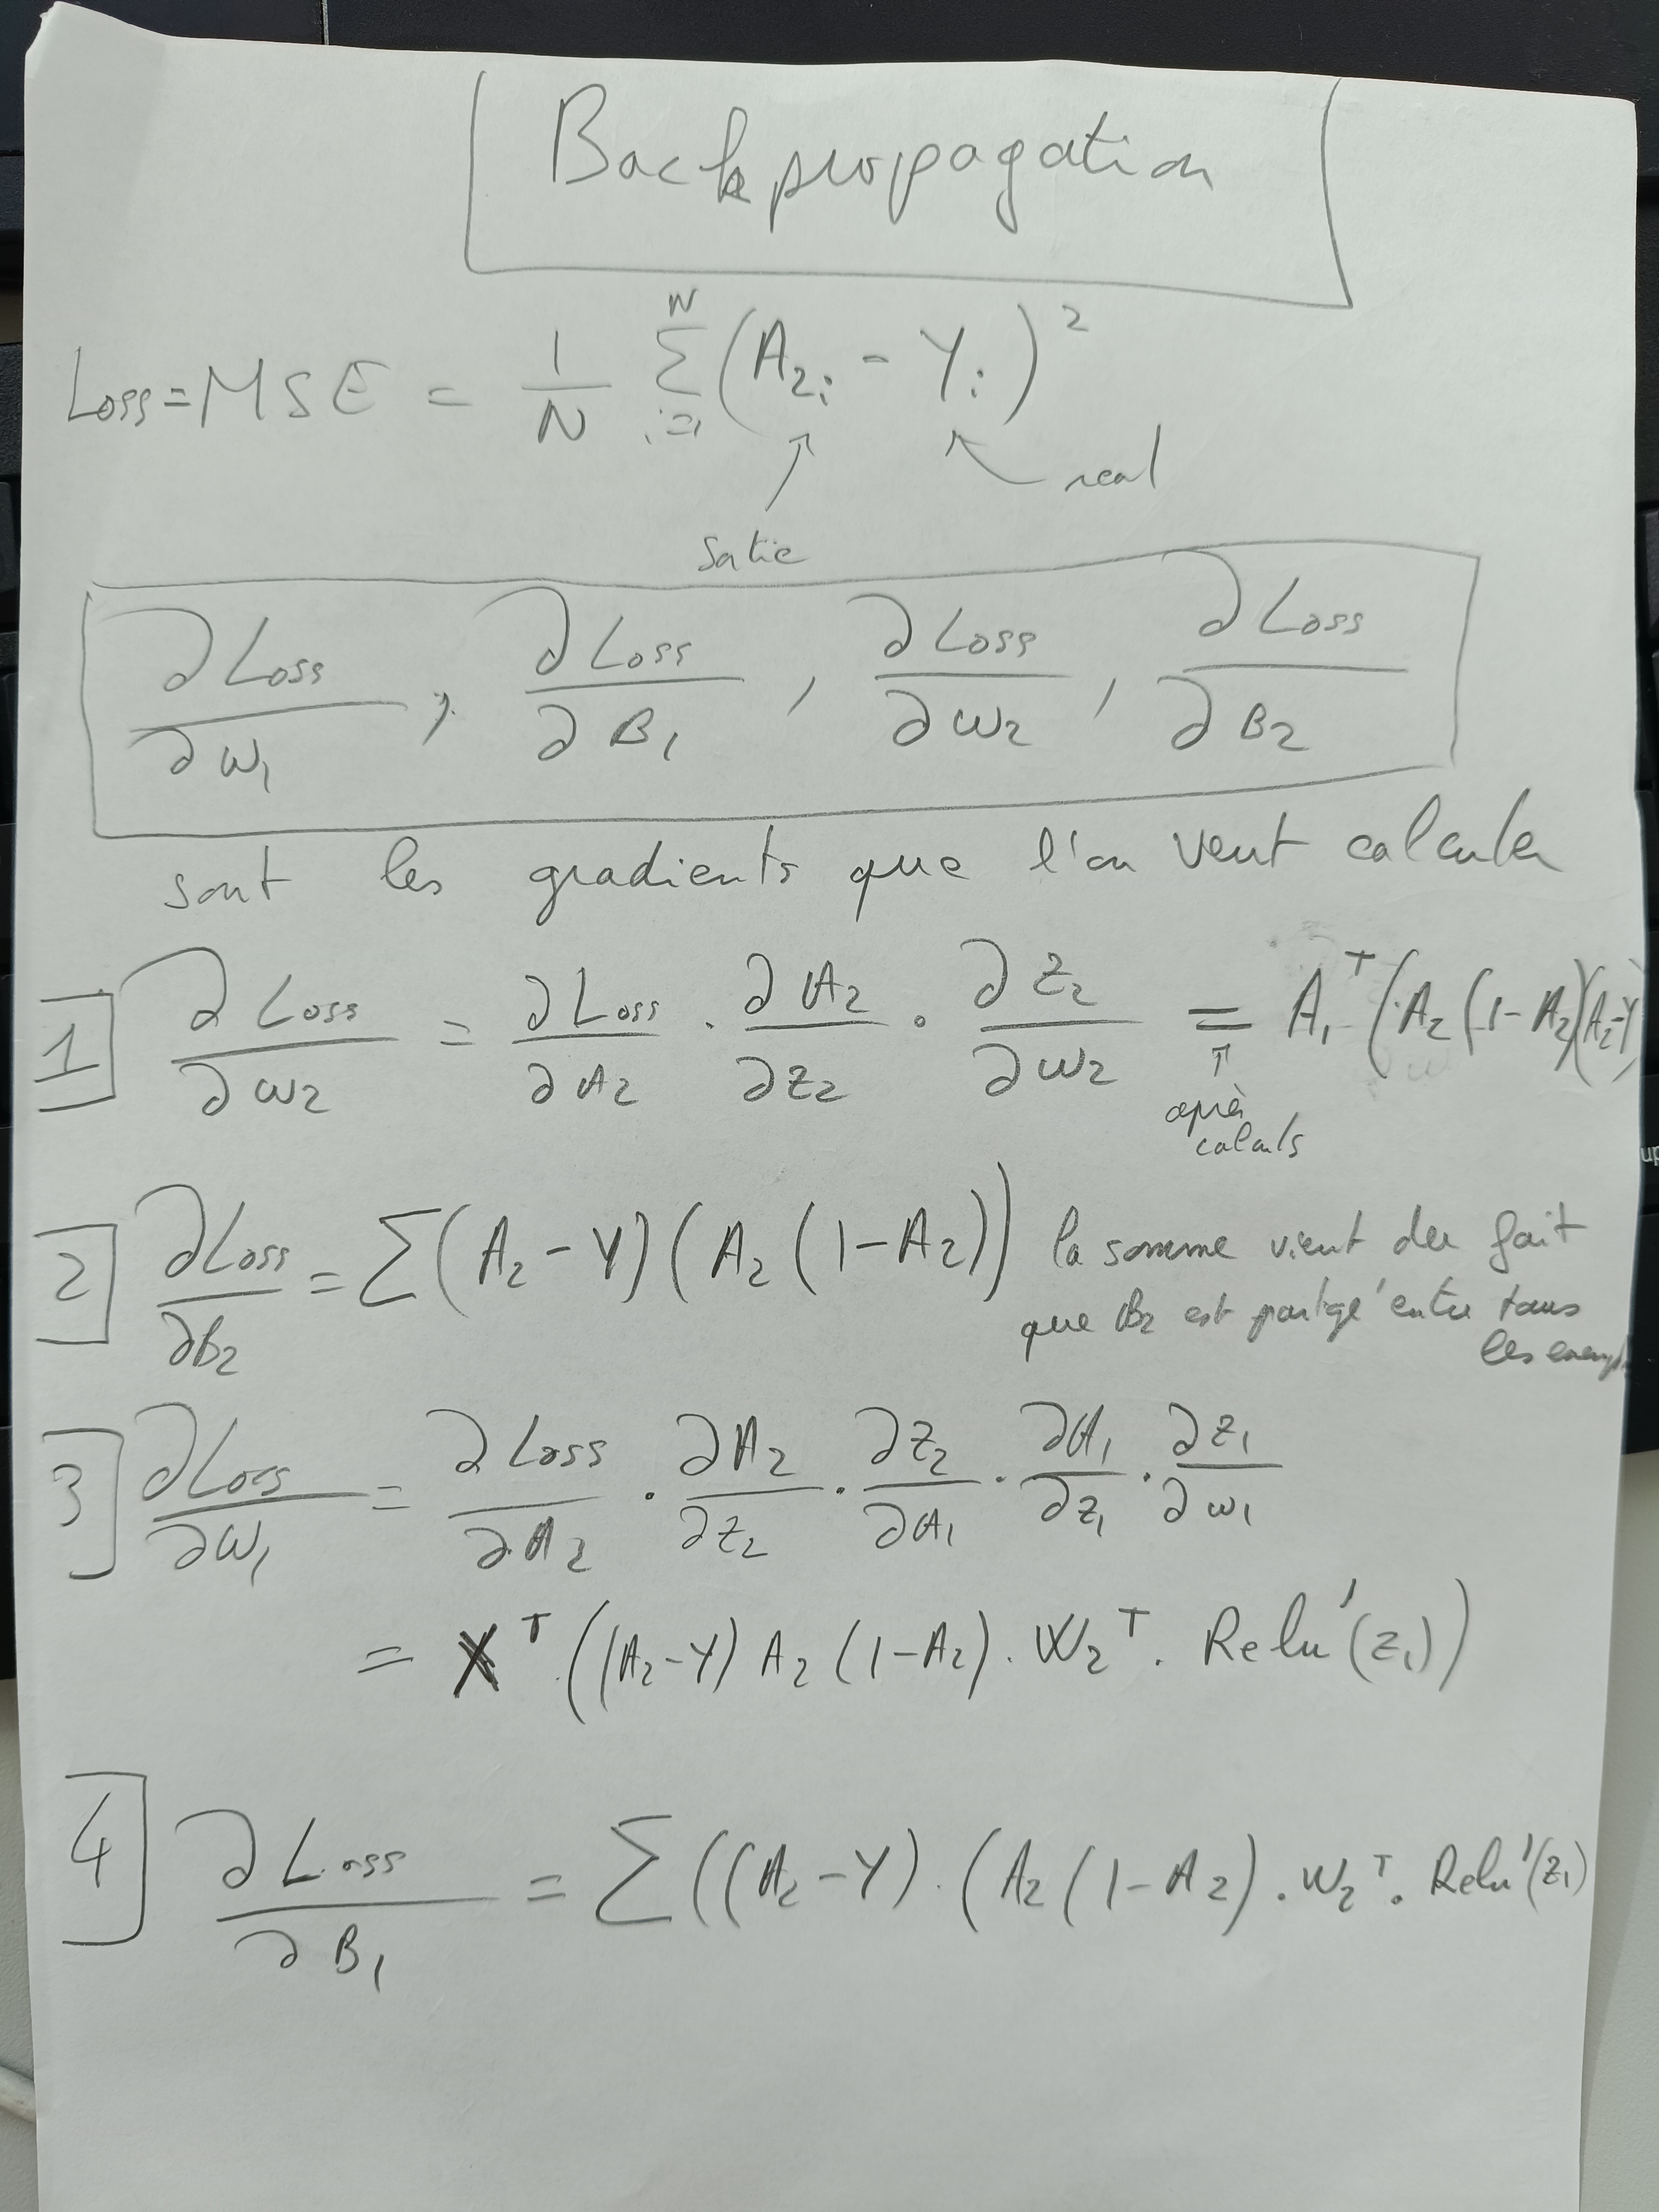 Backpropagation
Loss = MSE = 1/N Σ_{i=1}^{N} (A₂ᵢ - Yᵢ)²
real
∂Loss/∂W₁ , ∂Loss/∂B₁ , ∂Loss/∂W₂ , ∂Loss/∂B₂
sont les gradients que l'on veut calculer
1 ∂Loss/∂W₂ = ∂Loss/∂A₂ · ∂A₂/∂Z₂ · ∂Z₂/∂W₂ = A₁ᵀ (A₂(1-A₂)(A₂-Y)
↑
après
calculs
2 ∂Loss/∂B₂ = Σ(A₂ - Y)(A₂(1-A₂)) la somme vient du fait
que B₂ est partagé entre tous
les
3 ∂Loss/∂W₁ = ∂Loss/∂A₂ · ∂A₂/∂Z₂ · ∂Z₂/∂A₁ · ∂A₁/∂Z₁ · ∂Z₁/∂W₁
= Xᵀ · ((A₂-Y) A₂ (1-A₂) · W₂ᵀ · Relu'(Z₁))
4 ∂Loss/∂B₁ = Σ((A₂-Y) · (A₂(1-A₂) · W₂ᵀ · Relu'(Z₁)